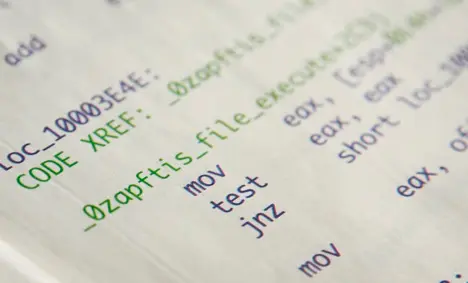 add
loc_10003E4E:
CODE XREF: _0zapftis_file_
_0zapftis_file_execute+2C3j
mov eax, [esp+
test eax, eax
jnz short loc_100
mov eax, of